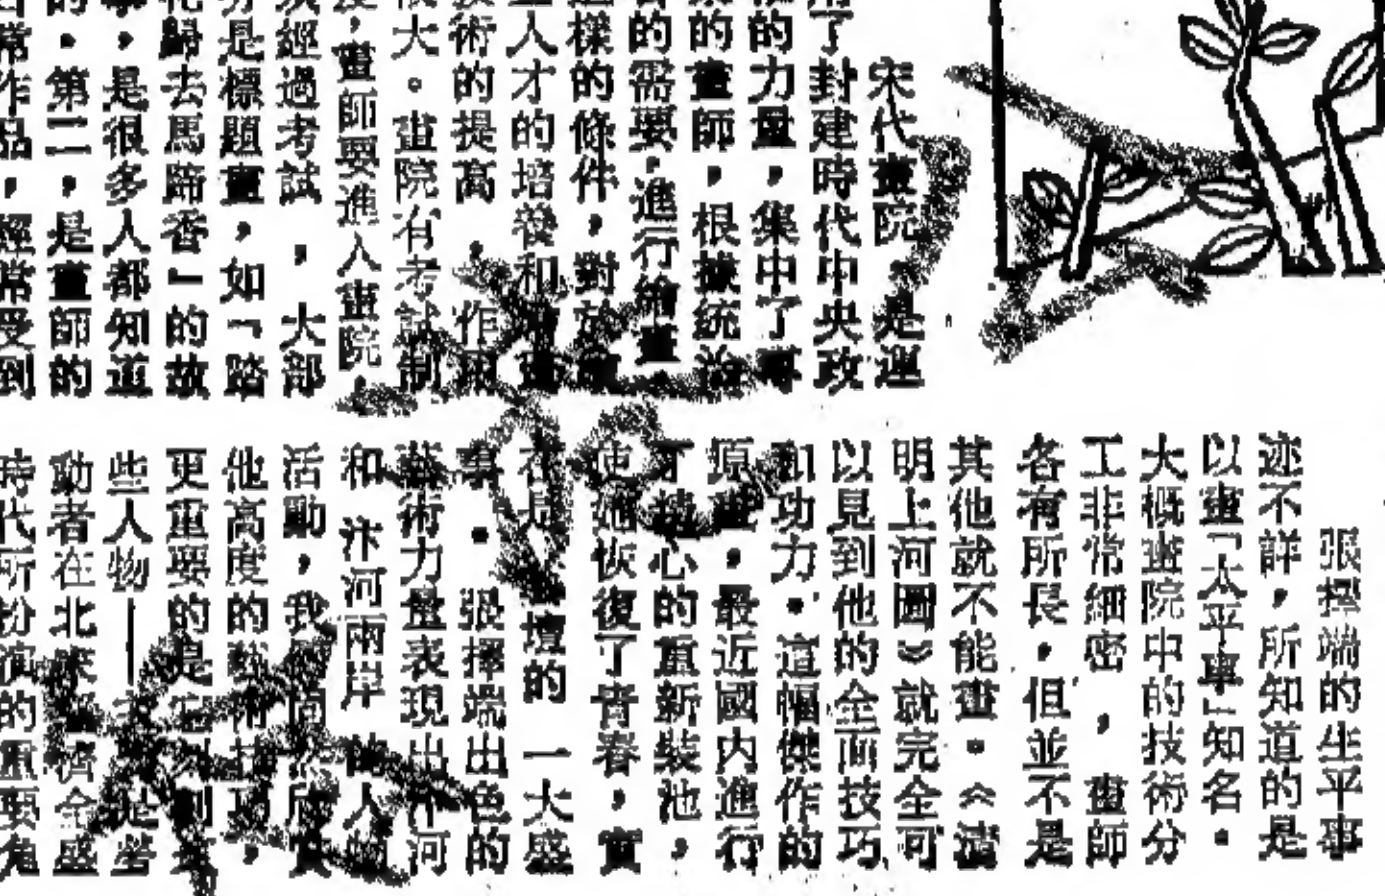 宋代畫院 是運
了封建時代中央政
的力量，集中了專
的畫師，根據統治
的需要，進行繪畫，
樣的條件，對於
人才的培養和
術的提高，作用
大。畫院有考試制
畫師要進入畫院，
經過考試 ，大部
是標題畫，如「踏
歸去馬蹄香」的故
，是很多人都知道
．第二，是畫師的
常作品，經常受到
張擇端的生平事
迹不詳，所知道的是
以畫「太平車」知名。
大概畫院中的技術分
工非常細密 ，畫師
各有所長，但並不是
其他就不能畫。《清
明上河圖》就完全可
以見到他的全面技巧
和功力。這幅傑作的
原畫，最近國内進行
了 心的重新裝池，
使她恢復了青春，實
在是 壇的 一大盛
事。張擇端出色的
藝術力量表現出汴河
和 汴河兩岸 的人物
活動，我
他高度的藝術技
更重要的是
些人物—
動者在北宋經濟全盛
時代所扮演的重要角